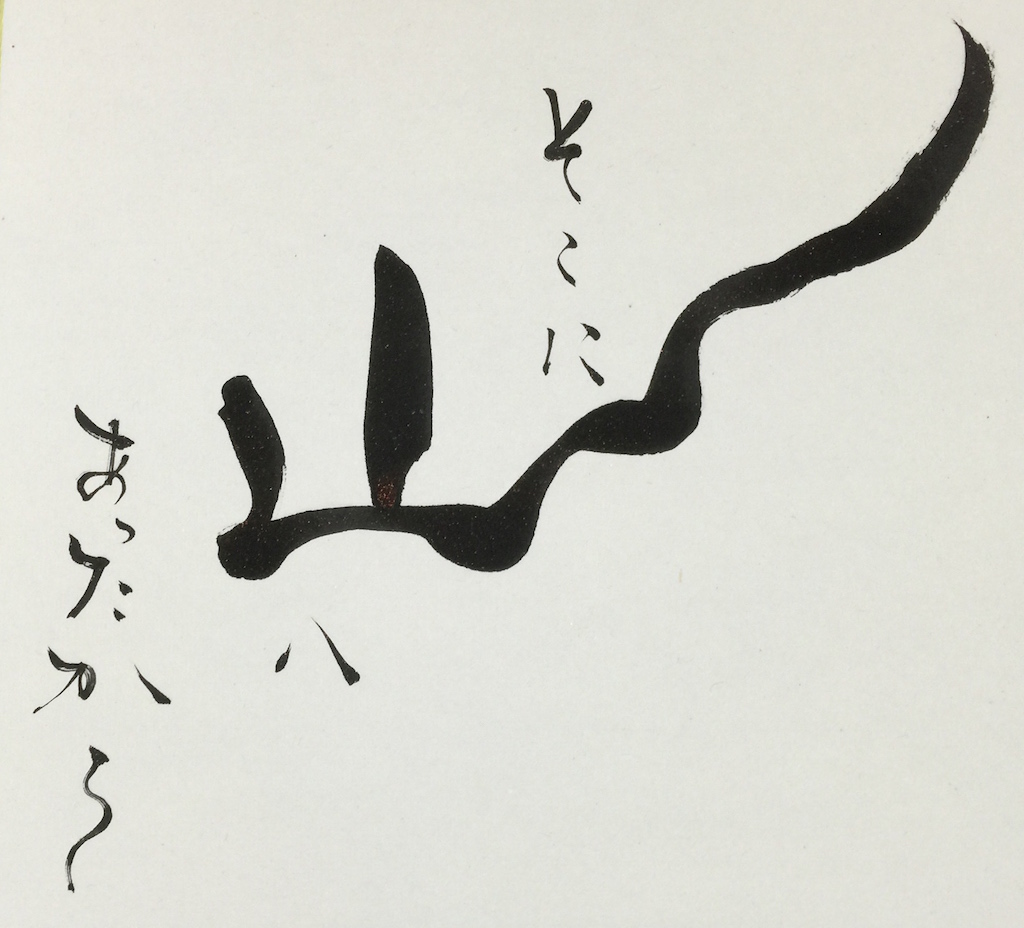 そこに
山ハ
あったから